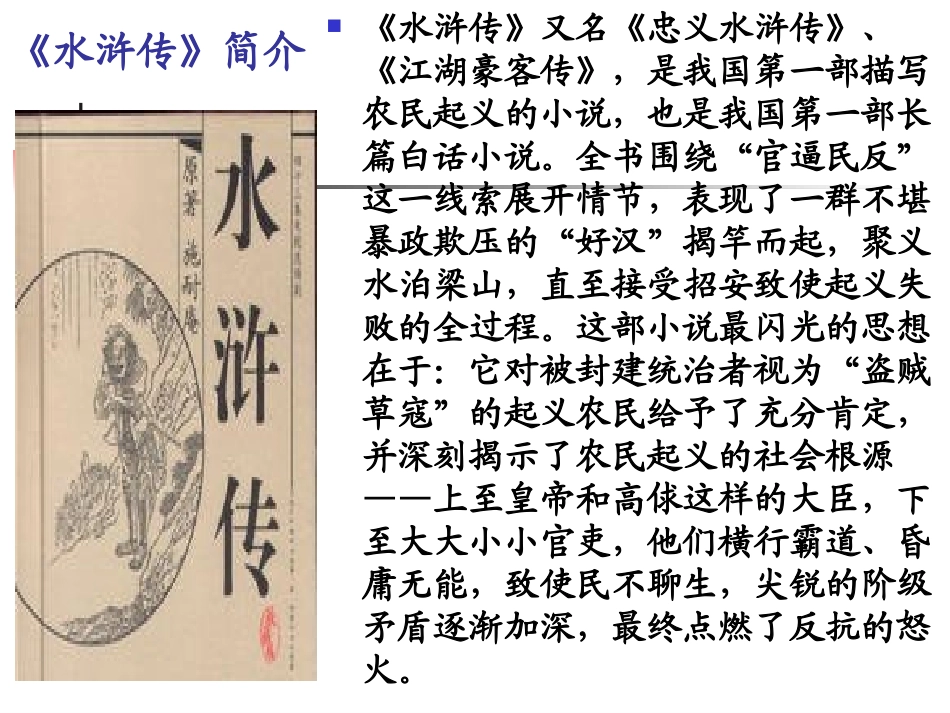 《水浒传》简介
《水浒传》又名《忠义水浒传》、
《江湖豪客传》，是我国第一部描写
农民起义的小说，也是我国第一部长
篇白话小说。全书围绕“官逼民反”
这一线索展开情节，表现了一群不堪
暴政欺压的“好汉”揭竿而起，聚义
水泊梁山，直至接受招安致使起义失
败的全过程。这部小说最闪光的思想
在于：它对被封建统治者视为“盗贼
草寇”的起义农民给予了充分肯定，
并深刻揭示了农民起义的社会根源
——上至皇帝和高俅这样的大臣，下
至大大小小官吏，他们横行霸道、昏
庸无能，致使民不聊生，尖锐的阶级
矛盾逐渐加深，最终点燃了反抗的怒
火。
水浒传
原著 施耐庵